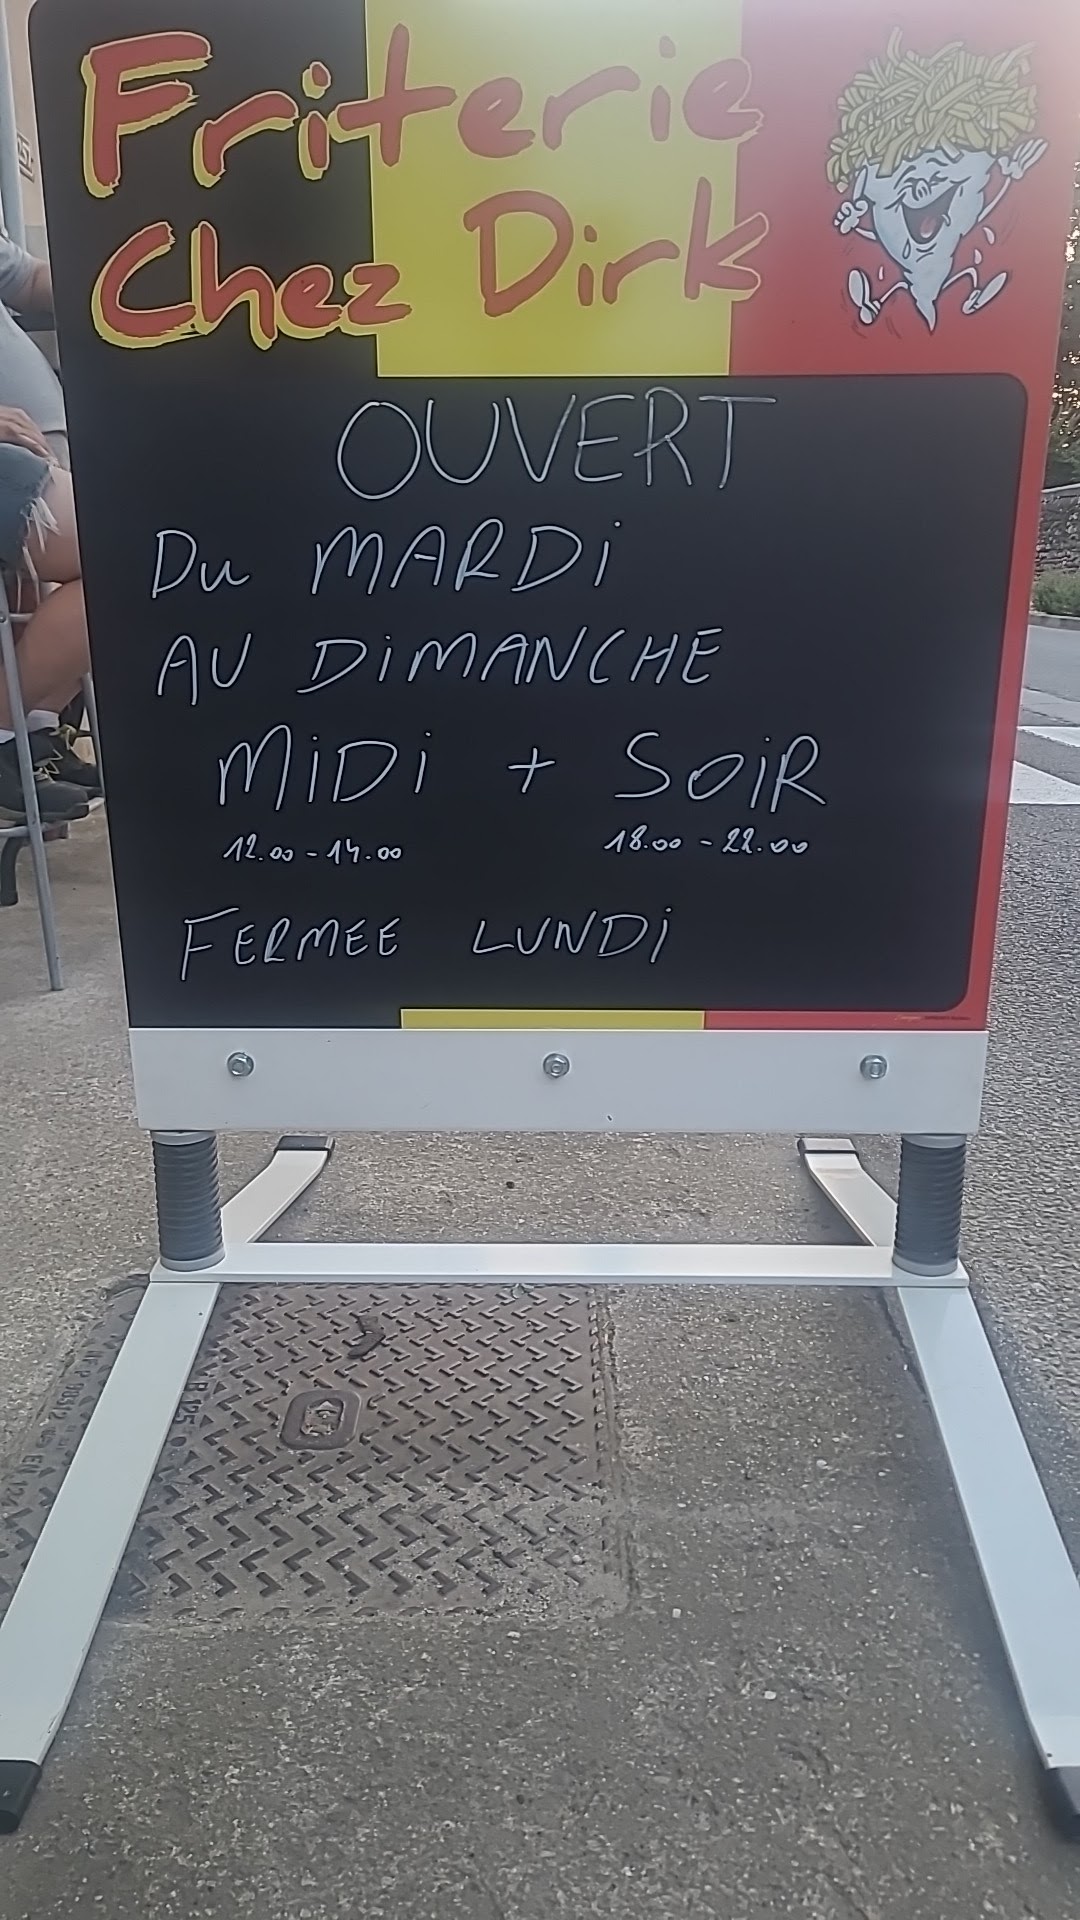 Friterie
Chez Dirk
OUVERT
Du MARDi
AU DiMANCHE
MiDi + SOiR
12.00 - 14.00 18.00 - 22.00
FERMEE LUNDi
B 125
EN 124